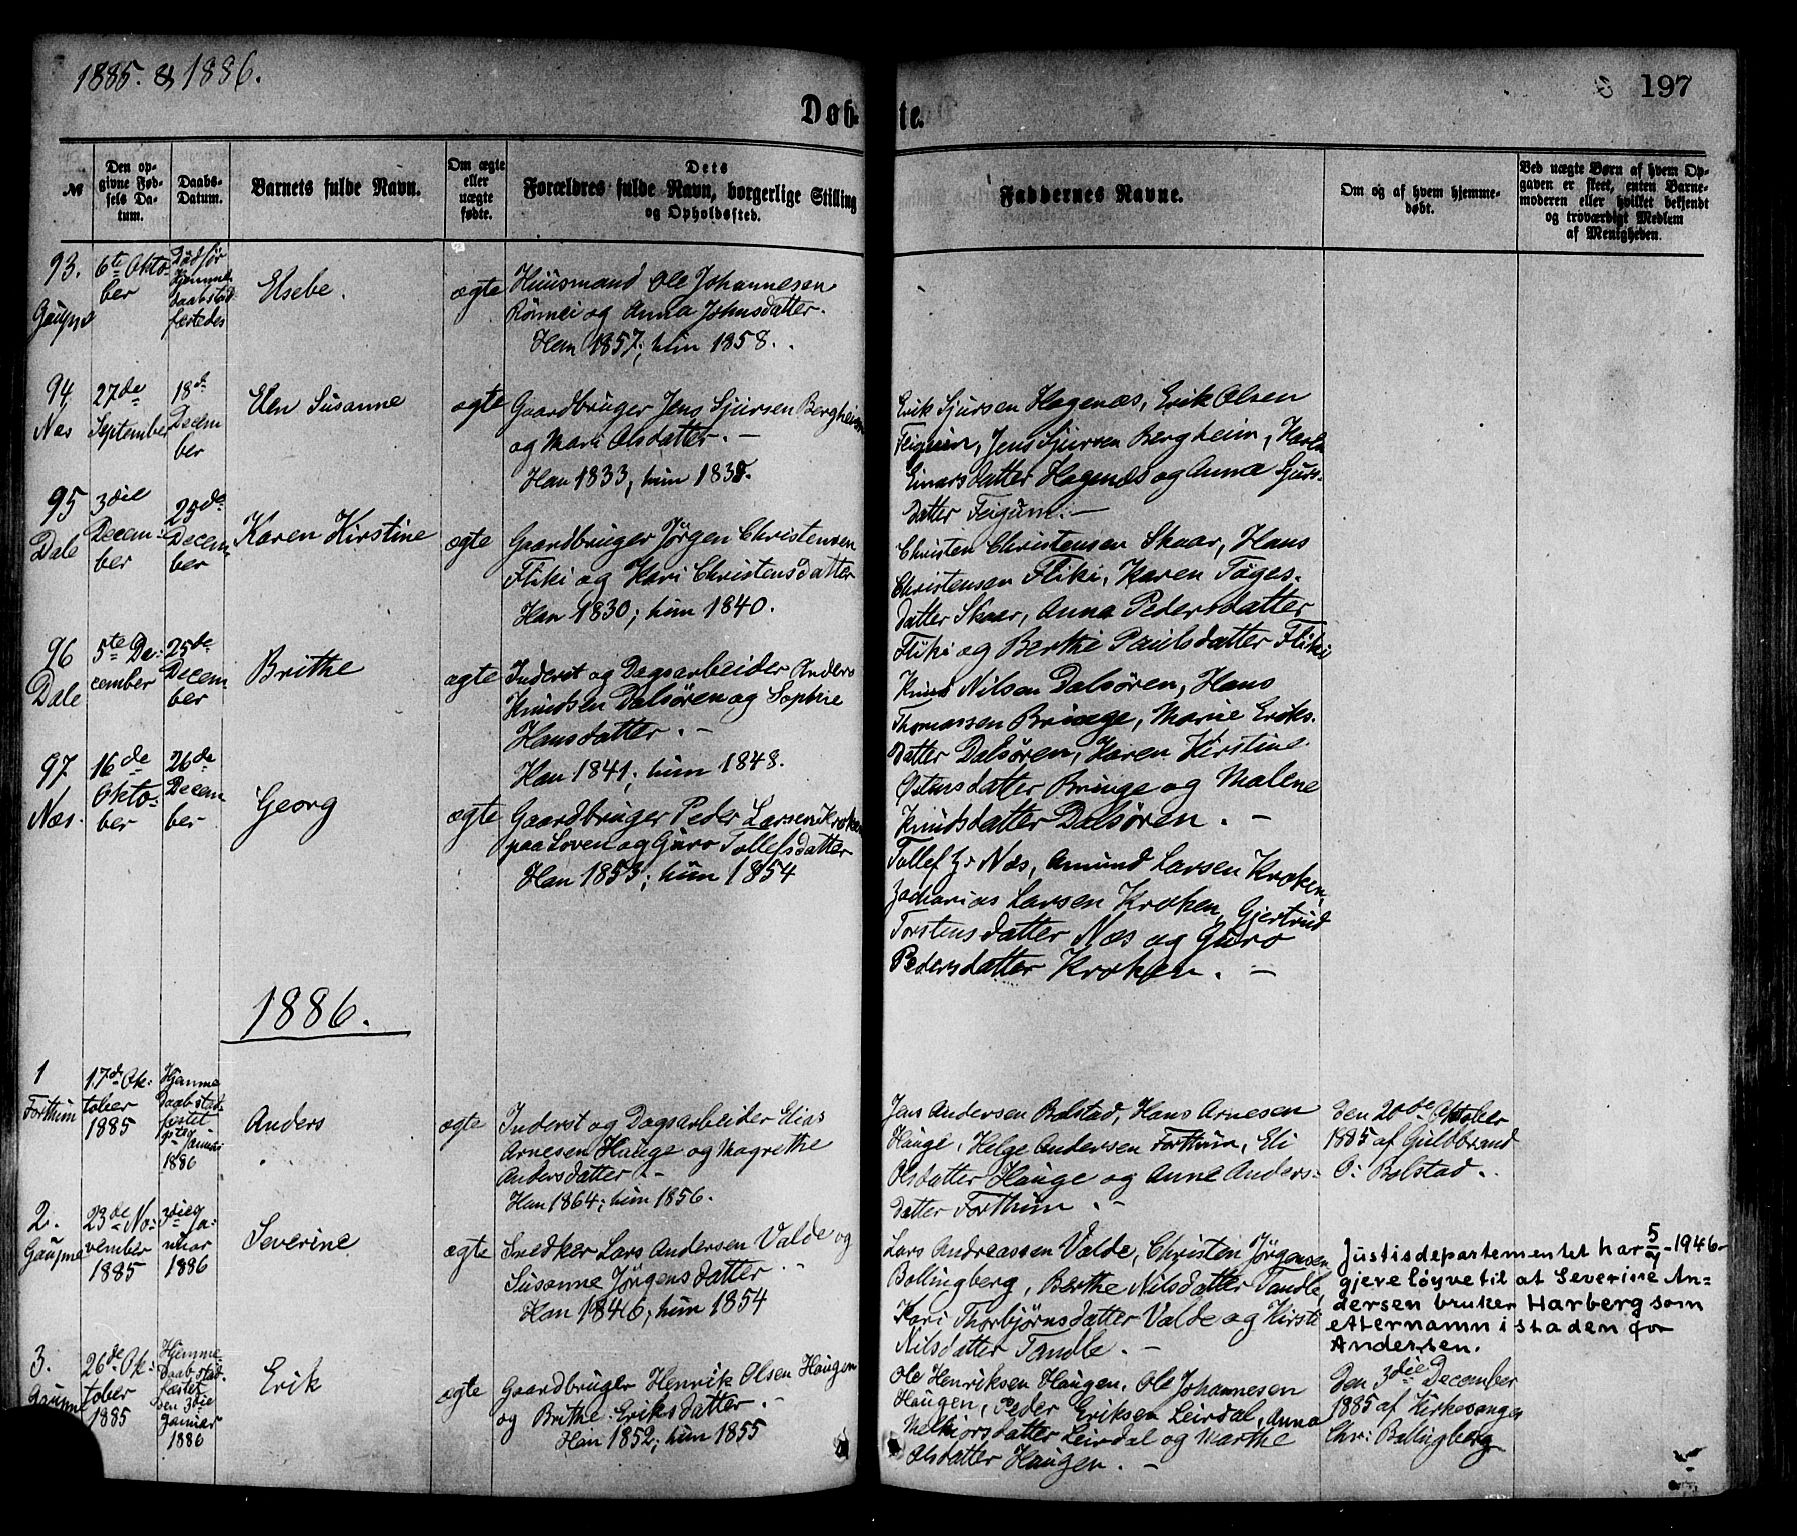 1885. & 1886.
197
Døb-te.
№
Den op-
givne Fød-
sels Da-
tum.
Daabs-
Datum.
Barnets fulde Navn.
Om ægte
eller
uægte
fødte.
Dets
Forældres fulde Navn, borgerlige Stilling
og Opholdssted.
Faddernes Navne.
Om og af hvem hjemme-
døbt.
Ved uægte Børn af hvem Op-
gaven er skeet, enten Barne-
moderen eller hvilket bekjendt
og troværdigt Medlem
af Menigheden.
93.
Gaupne
6te Okto-
ber
Død før
Hjemme
daabstad
fæstedes
Elsebe.
ægte
Huusmand Ole Johannesen
Rönnei og Anna Johnsdatter.
Han 1857; hun 1858.
94
Næs
27de
September
18de
Decem
ber
Elen Susanne
ægte
Gaardbruger Jens Sjursen Bergheim
og Mari Olsdatter. —
Han 1833, hun 1838.
Erik Sjursen Hagenæs, Erik Olsen
Feigum, Jens Sjursen Bergheim, Karla
Einarsdatter Hagenæs og Anna Sjurs-
datter Feigum. —
95
Dale
3die
Decem-
ber
25de
Decem
ber
Karen Kirstine
ægte
Gaardbruger Jørgen Christensen
Fliki og Kari Christensdatter
Han 1830; hun 1840.
Christen Christensen Skaar, Hans
Christensen Fliki, Karen Töges-
datter Skaar, Anna Pedersdatter
Fliki og Berthe Paulsdatter Fliki
96
Dale
5te De-
cember
25de
Decem
ber
Brithe
ægte
Inderst og Dagsarbeider Anders
Knudsen Dalsören og Sophie
Hansdatter. —
Han 1841; hun 1848.
Knud Nilsen Dalsören, Hans
Thomassen Bringe, Marie Eriks-
datter Dalsören, Karen Kirstine
Ostensdatter Bringe og Malene
Knudsdatter Dalsören. —
97
Næs.
16de
Okto-
ber
26de
Decem
ber
Georg
ægte
Gaardbruger Peder Larsen Kroken
paa Loven og Guro Tollefsdatter
Han 1853; hun 1854
Tollef Z. Næs, Amund Larsen Kroken,
Zacharias Larsen Kroken, Gjertrud
Torstensdatter Næs og Guro
Pedersdatter Kroken. —
1886.
1
Forthun
17de Ok-
tober
1885
Hjemme
Daabstad
festet
Januar
1886
Anders
ægte
Inderst og Dagsarbeider Elias
Arnesen Hauge og Magrethe
Andersdatter. —
Han 1864; hun 1856.
Jens Andersen Bolstad, Hans Arnesen
Hauge, Helge Andersen Forthun, Eli
Olsdatter Hauge og Anne Anders-
datter Forthun. —
Den 20de Oktober
1885 af Guldbrand
O. Bolstad.
2.
Gaupne
23de No-
vember
1885
3die Ja-
nuar
1886
Severine
ægte
Snedker Lars Andersen Valde og
Susanne Jörgensdatter
Han 1846; hun 1854
Lars Andreassen Valde, Christen Jørgensen
Bollingberg, Berthe Nilsdatter Tandle,
Kari Thorbjörnsdatter Valde og Kirsti
Nilsdatter Tandle. —
Justisdepartementet har 5/7 1946-
gjeve löyve til at Severine An-
dersen bruker Harberg som
etternamn i staden for
Andersen.
3.
Gaupne
26de Ok-
tober
1885
Hjemme
Daabstad-
fæstet
den 3die
Januar
1886
Erik
ægte
Gaardbruger Henrik Olsen Haugen
og Brithe Eriksdatter. —
Han 1852; hun 1855
Ole Henriksen Haugen, Ole Johannesen
Haugen, Peder Eriksen Leirdal, Anna
Melkiorsdatter Leirdal og Marthe
Olsdatter Haugen. —
Den 3die December
1885 af Kirkesanger
Chr: Bollingberg